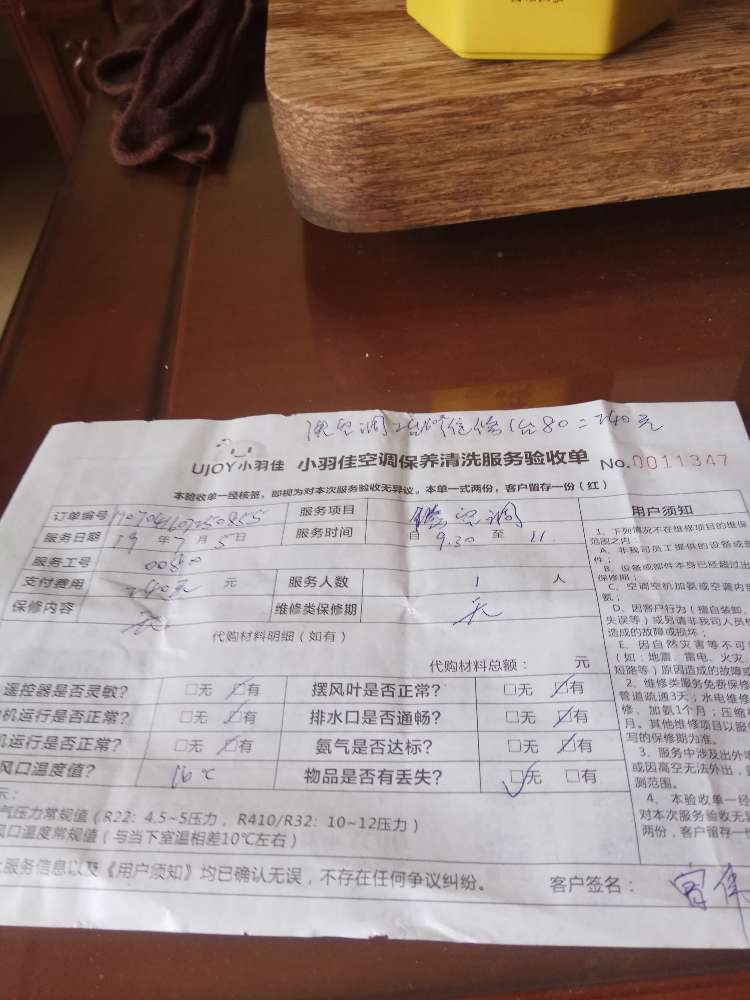 1台80=240元
UJOY小羽佳 小羽佳空调保养清洗服务验收单 No.0011347
本验收单一经核签，即视为对本次服务验收无异议。本单一式两份，客户留存一份（红）
订单编号 服务项目 空调 用户须知
服务日期 19年7月5日 服务时间 自 9.30 至 11.
服务工号 0080
支付费用 240元 元 服务人数 1 人
保修内容 无 维修类保修期 无
代购材料明细（如有）
代购材料总额： 元
遥控器是否灵敏? □无 □有 摆风叶是否正常? □无 □有
机运行是否正常? □无 □有 排水口是否通畅? □无 □有
机运行是否正常? □无 □有 氨气是否达标? □无 □有
风口温度值? 16℃ 物品是否有丢失? □无 □有
示：
气压力常规值（R22：4.5~5压力，R410/R32：10~12压力）
风口温度常规值（与当下室温相差10℃左右）
服务信息以及《用户须知》均已确认无误，不存在任何争议纠纷。 客户签名：
1、下列情况不在维修项目的维保
范围之内：
A、非我司员工提供的设备或部
件；
B、设备或部件本身已经超过出
保修期；
C、空调空机加氨或空调内部
氨；
D、因客户行为（擅自装卸、
失误等）或另请非我司人员
造成的故障或损坏；
E、因自然灾害等不可
（如：地震、雷电、火灾、
短路等）原因造成的故障或
2、维修类服务免费保修
管道疏通3天；水电维修
修、加氨1个月；压缩
月。其他维修项目以服
写的保修期为准。
3、服务中涉及出外
或因高空无法外出，
测范围。
4、本验收单一经
对本次服务验收无
两份，客户留存一份